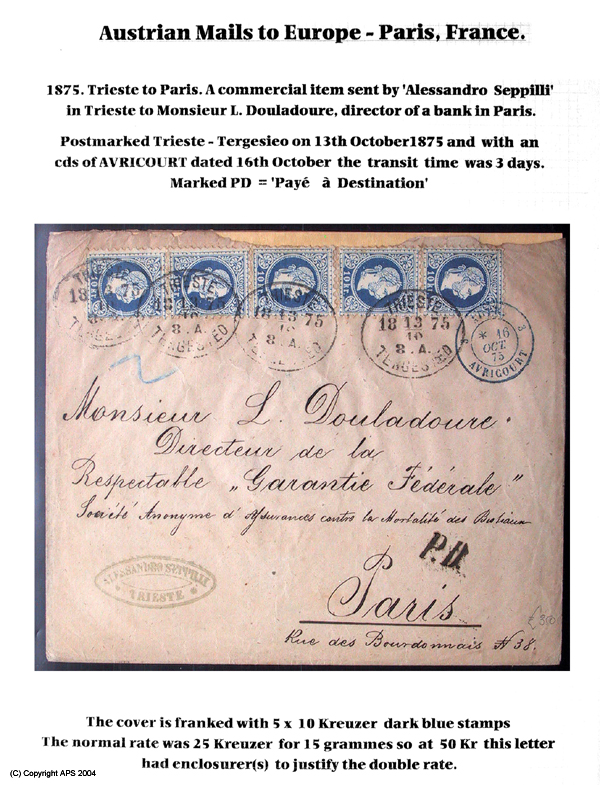 Austrian Mails to Europe - Paris, France.
1875. Trieste to Paris. A commercial item sent by 'Alessandro Seppilli'
in Trieste to Monsieur L. Douladoure, director of a bank in Paris.
Postmarked Trieste - Tergesieo on 13th October1875 and with an
cds of AVRICOURT dated 16th October the transit time was 3 days.
Marked PD = 'Payé à Destination'
10 KR 10 KR 10 KR 10 KR 10 KR
TRIESTE
18 13 75
10
8.A.
TERGESTEO
TRIESTE
18 13 75
10
8.A.
TERGESTEO
TRIESTE
18 13 75
10
8.A.
TERGESTEO
TRIESTE
18 13 75
10
8.A.
TERGESTEO
3 3
* 16
OCT
75
AVRICOURT
Monsieur L. Douladoure.
Directeur de la
Respectable „Garantie Fédérale"
Société Anonyme d'Assurances contre la Mortalité des Bestiaux
P.D.
ALESSANDRO SEPPILLI
* TRIESTE *
Paris
Rue des Bourdonnais N 38.
The cover is franked with 5 x 10 Kreuzer dark blue stamps
The normal rate was 25 Kreuzer for 15 grammes so at 50 Kr this letter
had enclosurer(s) to justify the double rate.
(C) Copyright APS 2004